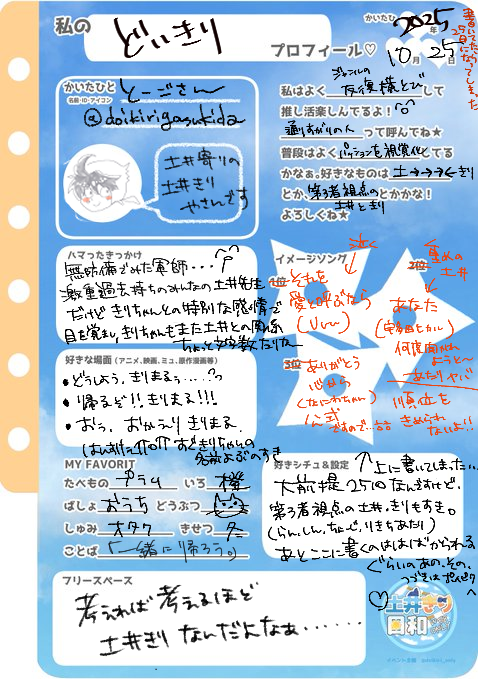 私の どいきり プロフィール♡
かいたひ 2025年
10月25日
書いてたら
25日になってしまった
かいたひと
名前・ID・アイコン
とーごさん
@doikirigasukida
土井寄りの
土井きり
やさんです
私はよく ジャンルの反復横とび して
推し活楽しんでるよ!
通りすがりの人 って呼んでね★
普段はよく パッションを視覚化 してる
かなぁ。好きなものは 土→→←きり
とか、第3者視点の土井ときり とかかな!
よろしくね★
ハマったきっかけ
無防備でみた軍師...
激重過去持ちのみんなの土井先生
だけどきりちゃんとの特別な感情で
目を覚まし、きりちゃんもまた土井との関係
ちょっと文字数たりねー
イメージソング
1位 それを
愛と呼ぶなら
(Uru)
2位
重めの
土井
あなた
(宇多田ヒカル)
何度向かれ
ようと〜
あたりヤバ
3位 ありがとう
心から
(なにわちゃん)
公式
ですので...
順位を
きめられ
ないよ!!
好きな場面(アニメ、映画、ミュ、原作漫画等)
・どうしよう、きりまるぅ...
・帰るぞ!!きりまる!!!
・おぅ、おかえりきりまる
名前よぶのすき
MY FAVORIT
たべもの プラム いろ 橙
ばしょ おうち どうぶつ
しゅみ オタク きせつ 冬
ことば 「一緒に帰ろう。」
好きシチュ&設定
↑上に書いてしまった...
大前提25のなんですけど、
第3者視点の土井、きりもすき。
(らん、しん、ちょーじ、りきちあたり)
あとここに書くのははばかられる
ぐらいのあの、その、
つづきはポイピク
へ
フリースペース
考えれば考えるほど
土井きりなんだよなぁ......
土井きり
日和
イベント主催 @doikiri_only